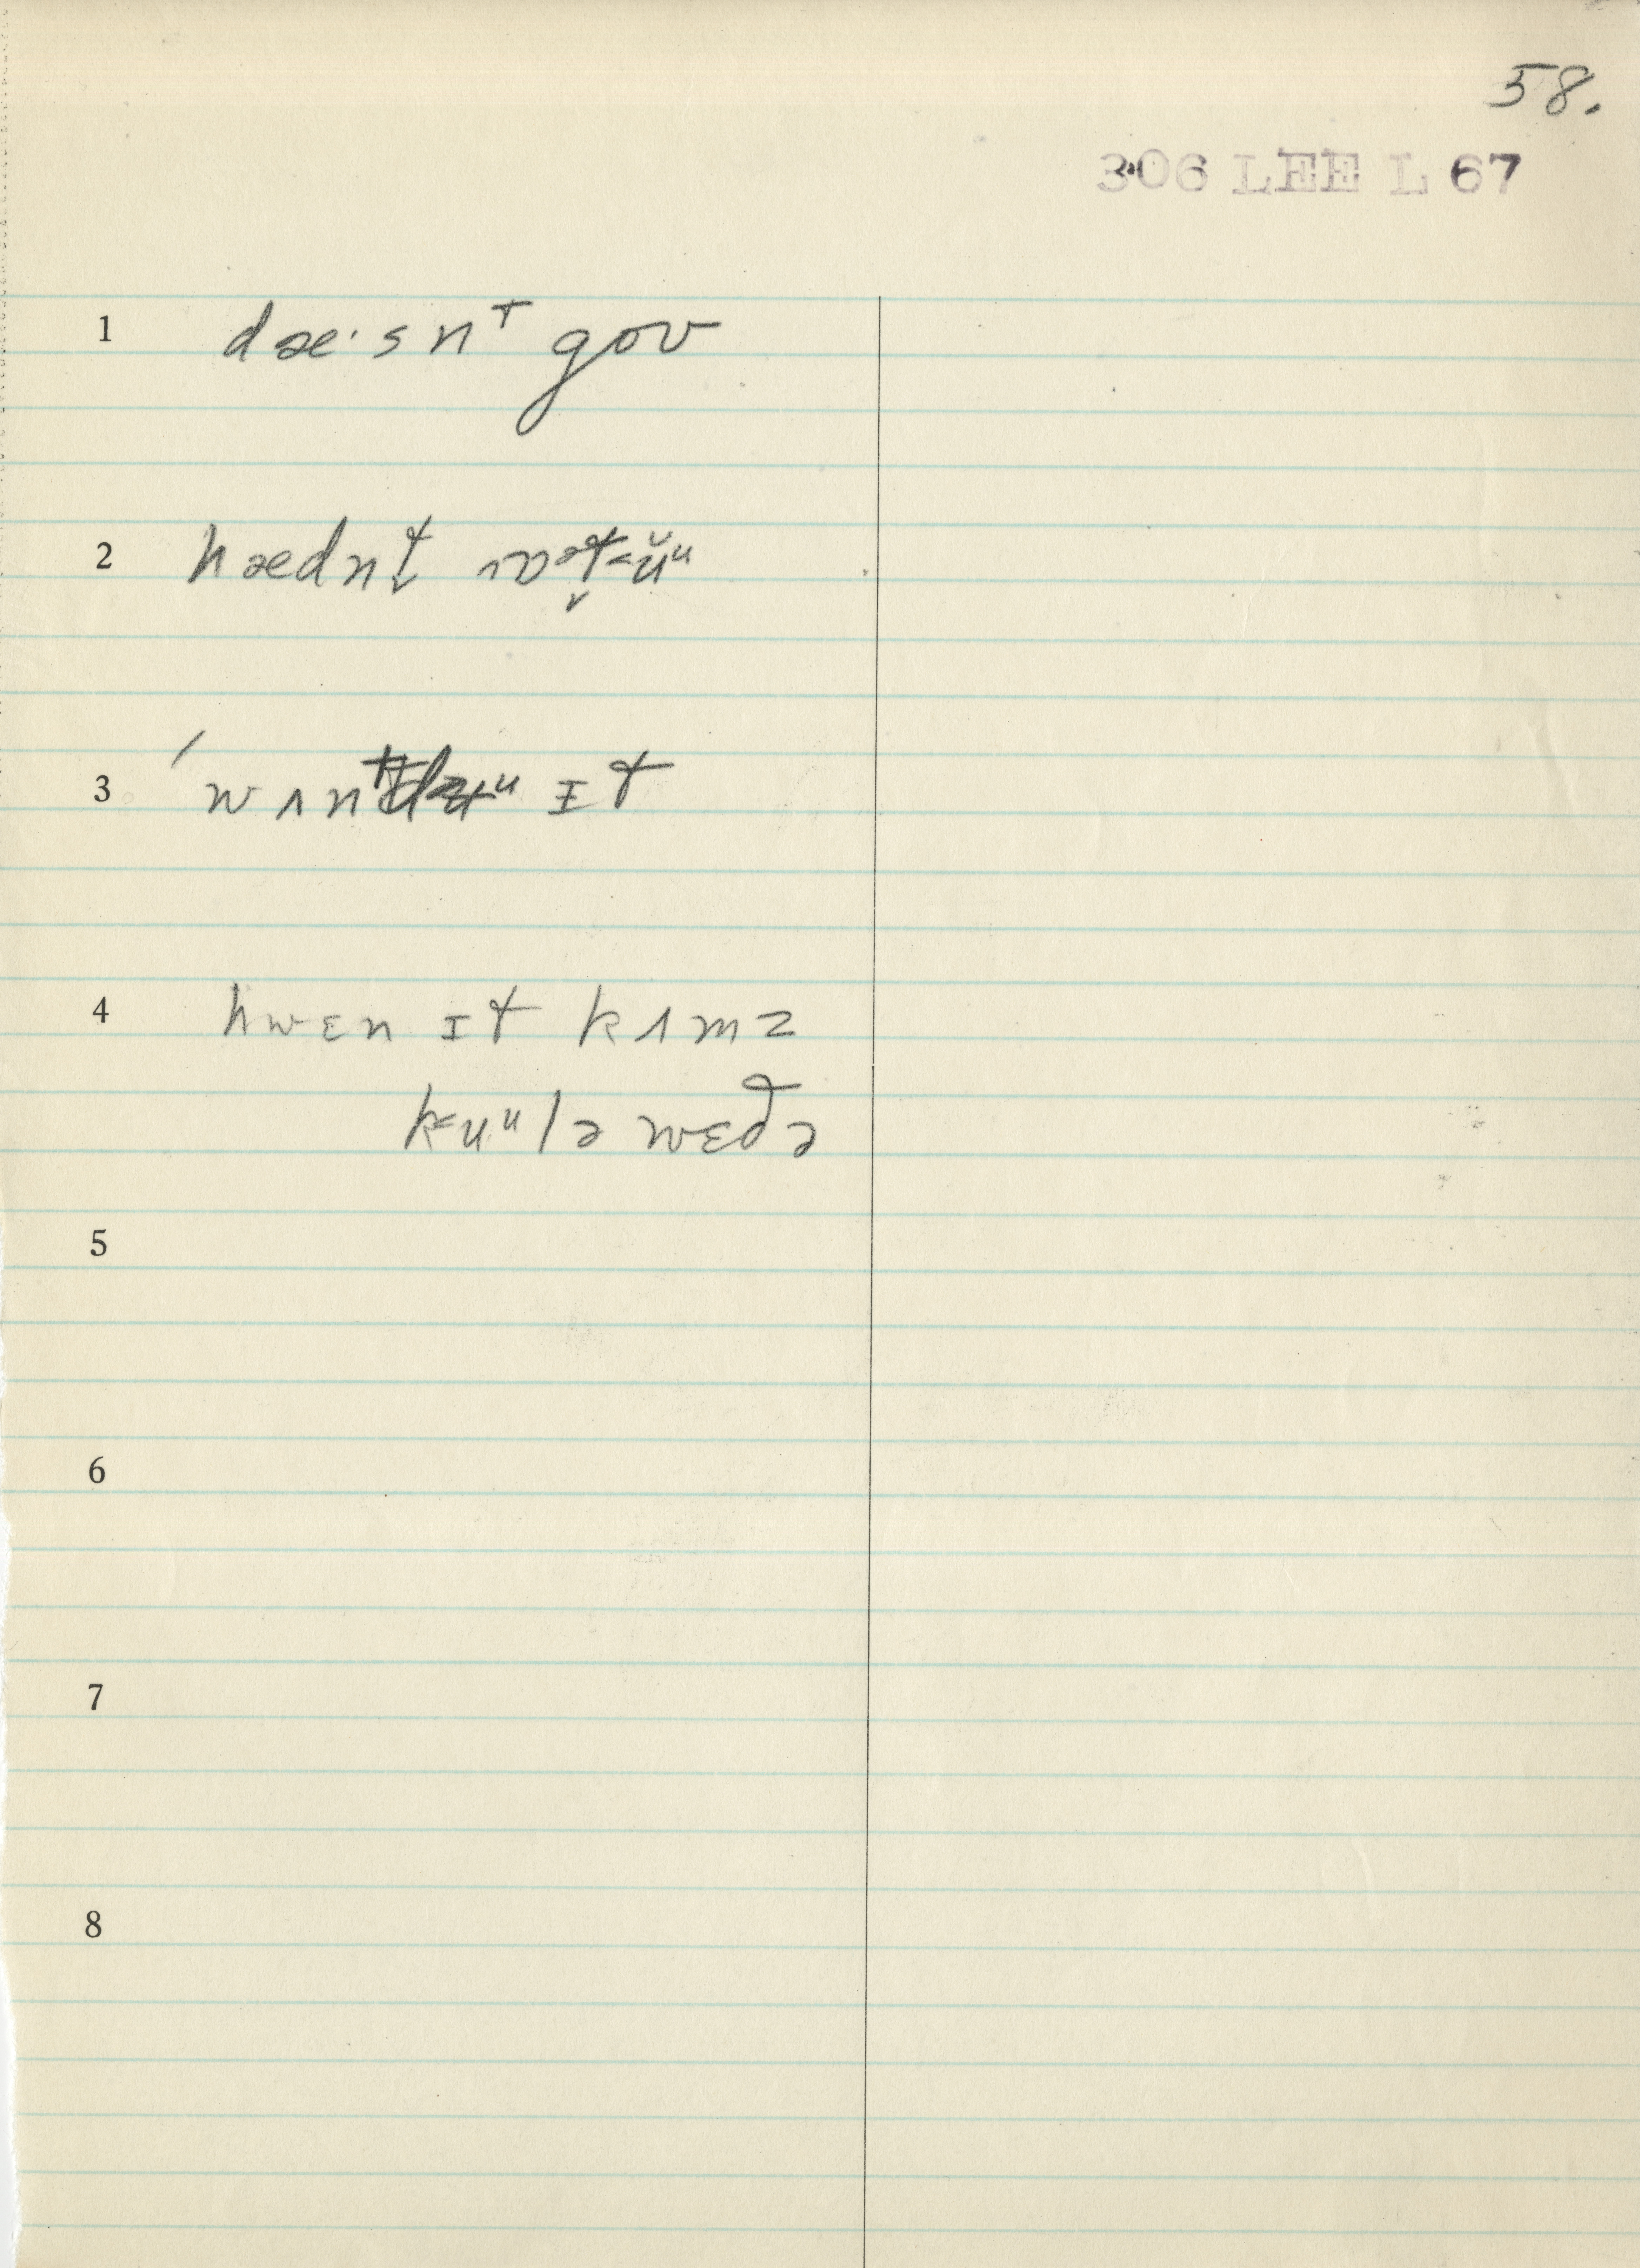 58.
306 LEE L 67
1 dæ·snᵗ goʊ
2 hædnt̬
3 ɪt
4 hwɛn ɪt kʌmz
k<uᵘlə wɛðə
5
6
7
8